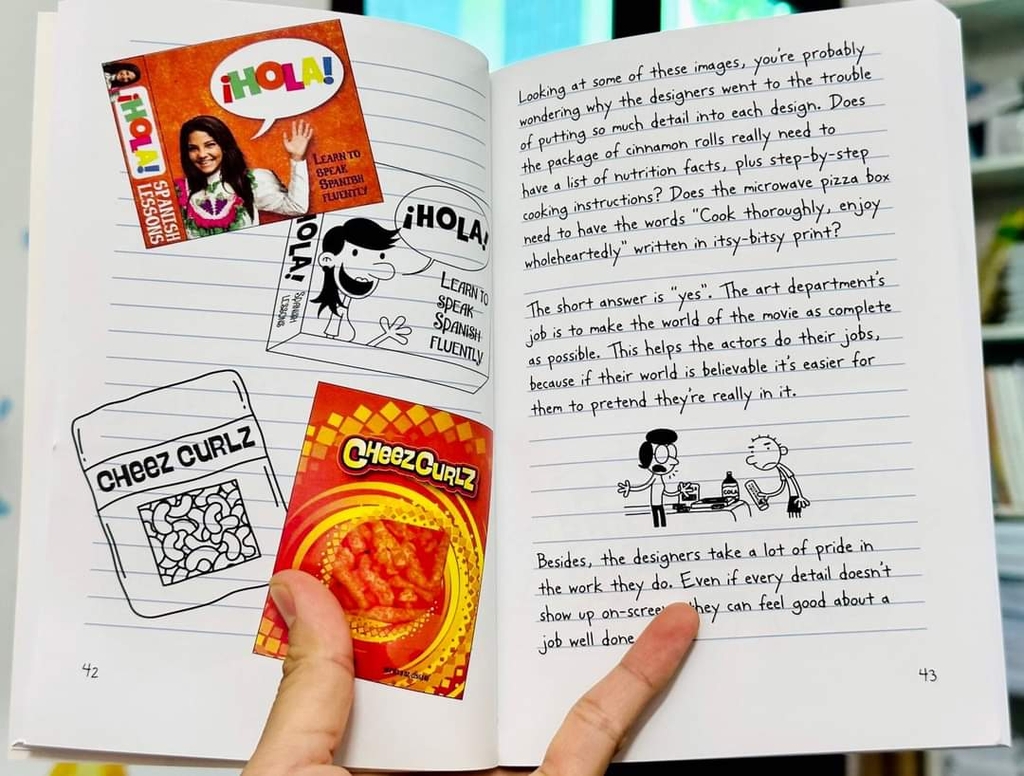 ¡HOLA!
¡HOLA!
SPANISH
LESSONS
LEARN TO
SPEAK
SPANISH
FLUENTLY
¡HOLA!
HOLA!
SPANISH
LESSONS
LEARN TO
SPEAK
SPANISH
FLUENTLY
CHEEZ CURLZ
CHEEZ CURLZ
42
Looking at some of these images, you're probably
wondering why the designers went to the trouble
of putting so much detail into each design. Does
the package of cinnamon rolls really need to
have a list of nutrition facts, plus step-by-step
cooking instructions? Does the microwave pizza box
need to have the words "Cook thoroughly, enjoy
wholeheartedly" written in itsy-bitsy print?
The short answer is "yes". The art department's
job is to make the world of the movie as complete
as possible. This helps the actors do their jobs,
because if their world is believable it's easier for
them to pretend they're really in it.
COLA
Besides, the designers take a lot of pride in
the work they do. Even if every detail doesn't
show up on-screen they can feel good about a
job well done
43